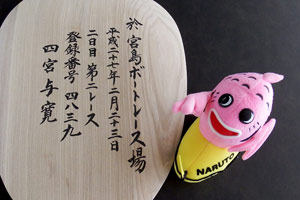 於 宮島ボートレース場
平成二十七年二月二十三日
二日目 第二レース
登録番号 四八三九
四宮与寛
NARUTO